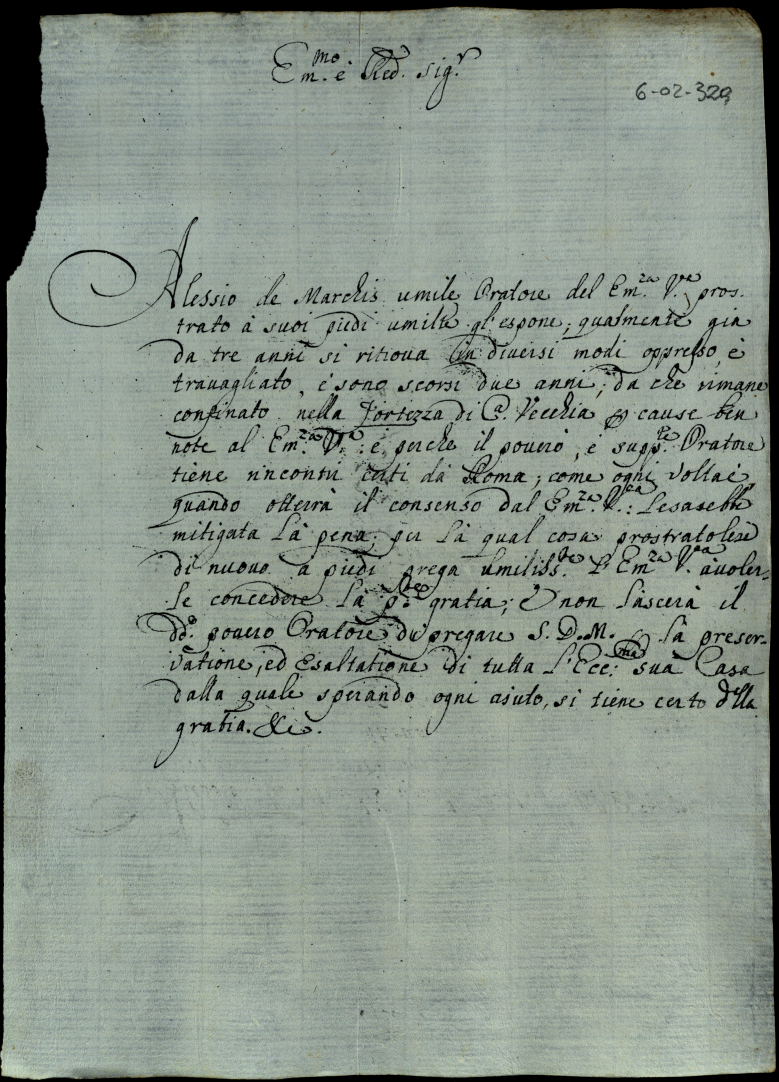 Em.mo e Red. Sig.r
6-02-329
Alessio de Marchis umile Oratore del Em.za V.ra pros-
trato à suoi piedi umilte gl'espone, qualmente già
da tre anni si ritrova in diversi modi oppresso, è
travagliato, è sono scorsi due anni, da che rimane
confinato nella Fortezza di C.a Vecchia p cause ben
note al Em.za V.ra: è perche il povero, è supp.te Oratore
tiene rincontri certi da Roma, come ogni volta è,
quando otterrà il consenso dal Em.za V.ra: Le sarebbe
mitigata là pena, per là qual cosa prostratolese
di nuovo a piedi prega umiliss.te L'Em.za V.ra à voler-
le concedere là p.te gratia; E non lascerà il
dd.o povero Oratore di pregare S. D. M. p là preser-
vatione, ed Esaltatione di tutta L'Ecc.ma sua Casa
dalla quale sperando ogni ajuto, si tiene certo della
gratia. &c.